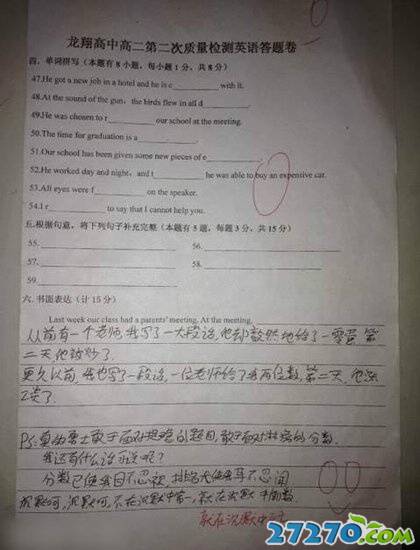 龙翔高中高二第二次质量检测英语答题卷
四. 单词拼写 (本题有8小题, 每小题1分, 共8分)
47.He got a new job in a hotel and he is c________ with it.
48.At the sound of the gun, the birds flew in all d________
49.He was chosen to r________ our school at the meeting.
50.The time for graduation is a________.
51.Our school has been given some new pieces of e________
52.He worked day and night, and t________ he was able to buy an expensive car.
53.All eyes were f________ on the speaker.
54.I r________ to say that I cannot help you.
五.根据句意, 将下列句子补充完整 (本题有5题, 每题3分, 共15分)
55. 56.
57. 58.
59.
六. 书面表达 (计15分)
Last week our class had a parents' meeting, At the meeting,
从前有一个老师,我写了一大段话,他却毅然地给了一零蛋,第
二天他
更久以前,我也写了一段话,一位老师给了我两位数,第二天,他
了.
PS:真的勇士敢于面对 的题目,敢于面对 的分数.
我还有什么话可说呢?
分数已使我目不忍视, 尤使我耳不忍闻
沉默呵,沉默呵,不在沉默中 ,就在沉默中
就在沉默中
27270.com